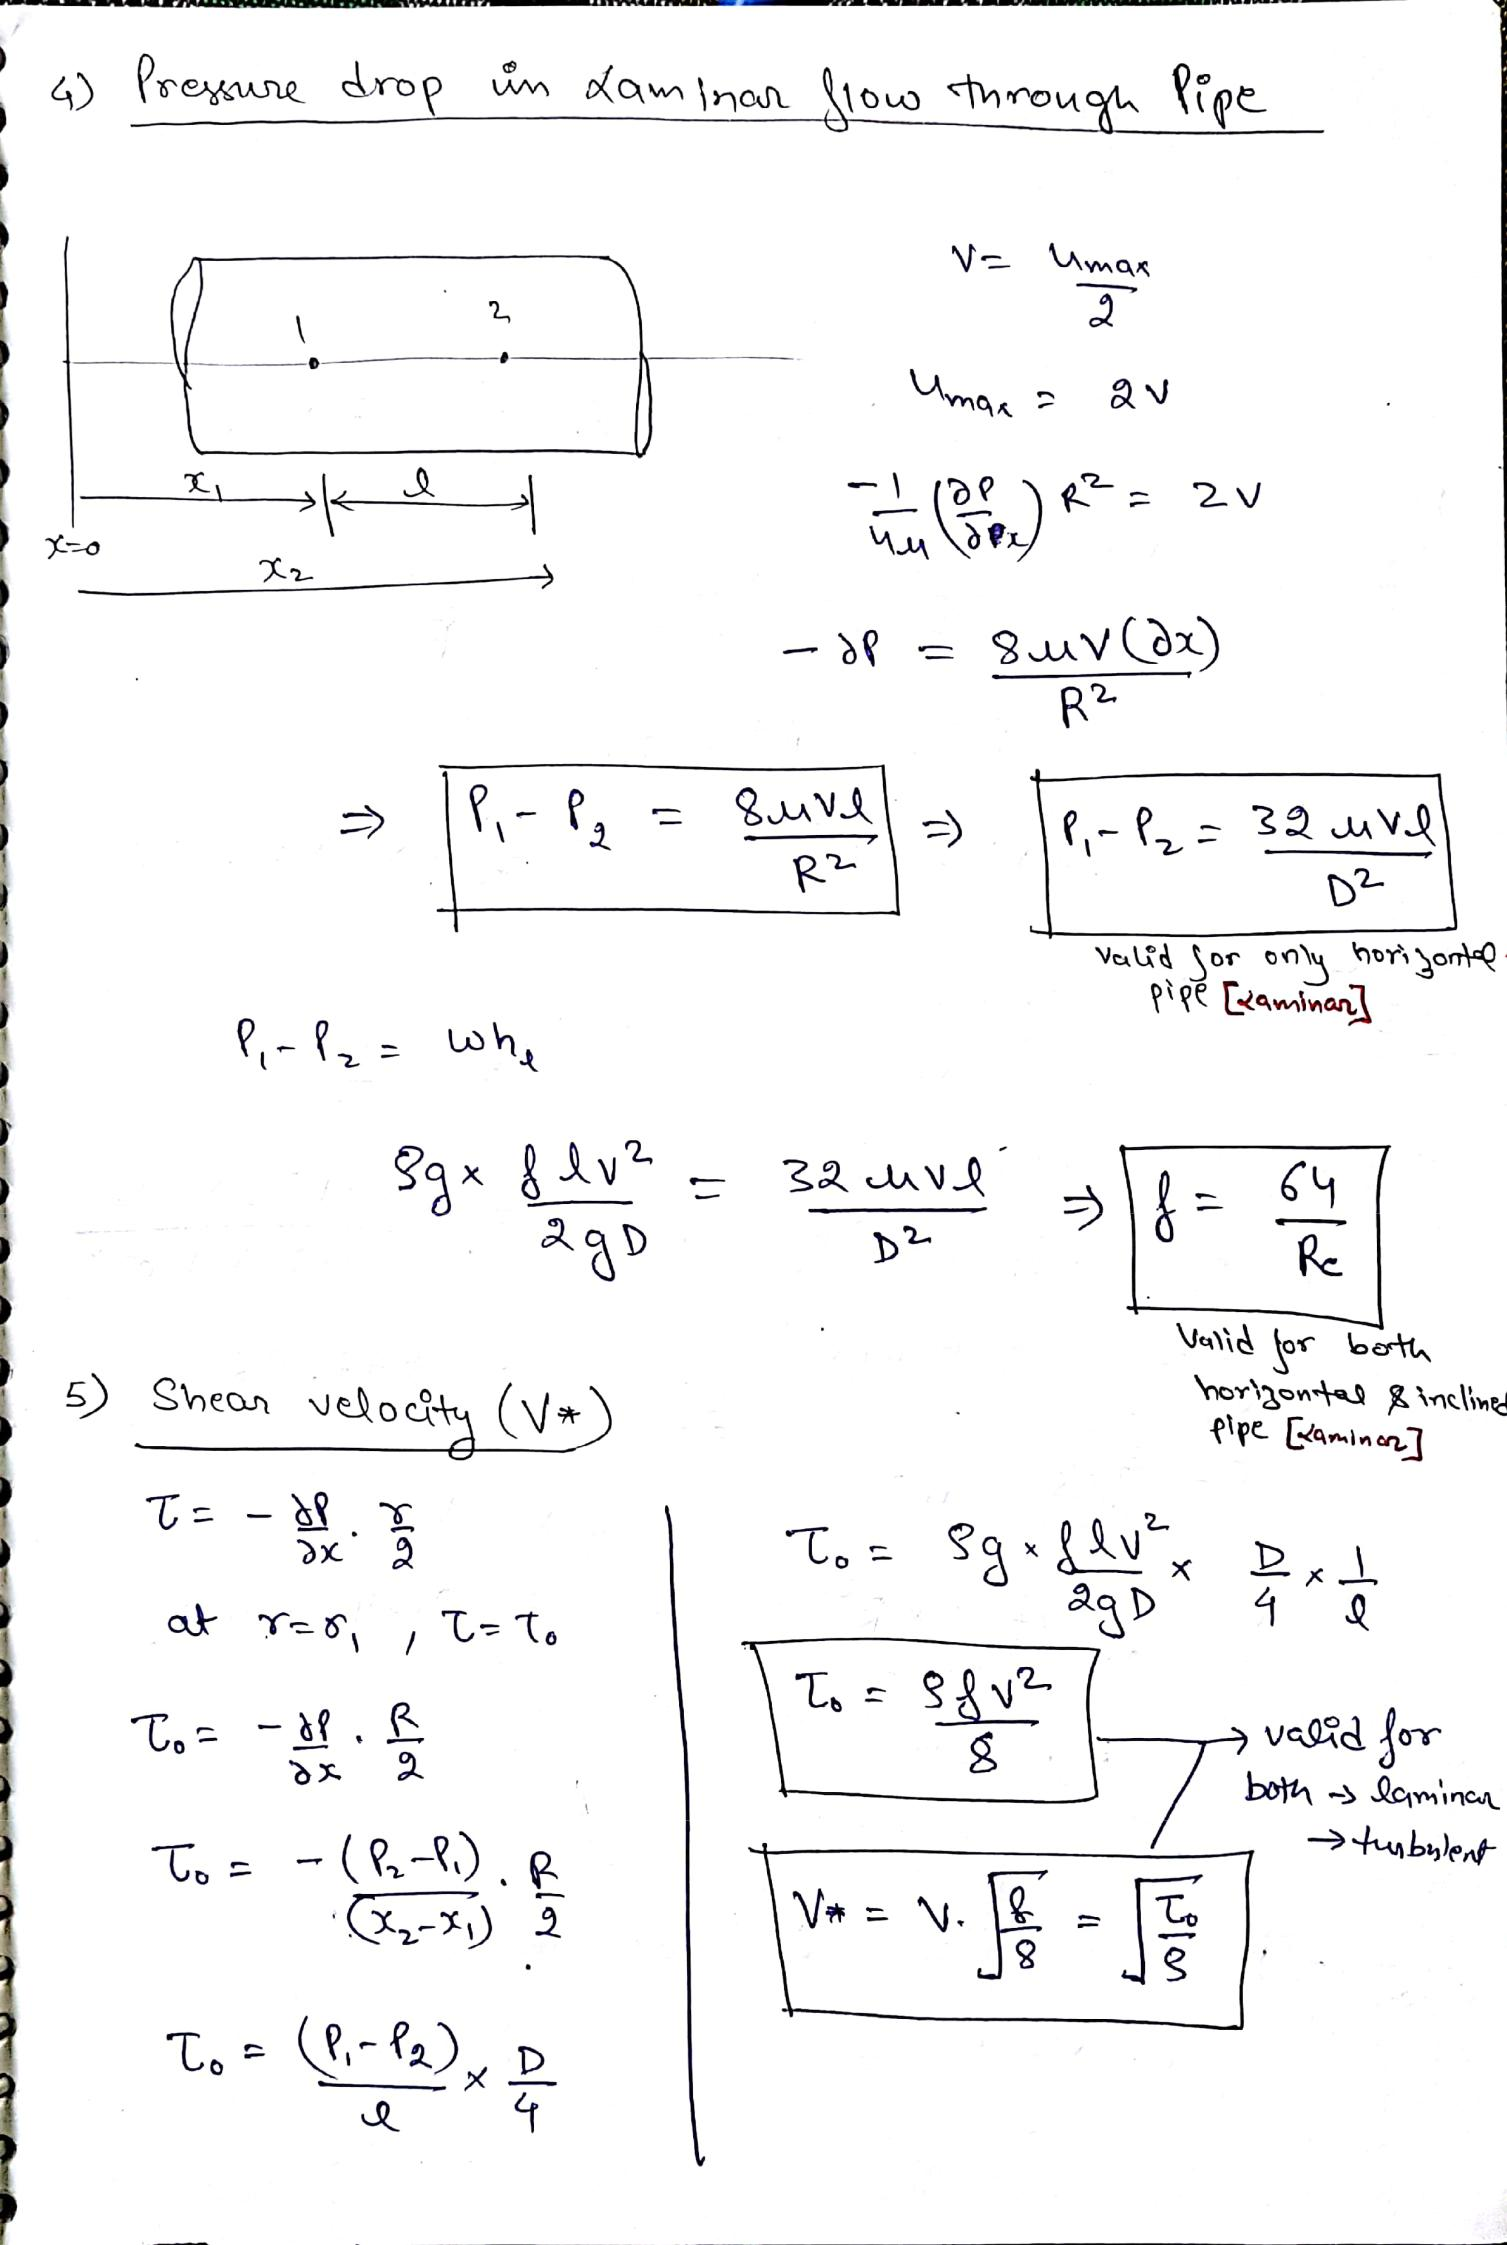 4) Pressure drop in Laminar flow through Pipe
1 2
x₁ l
x=0
x₂
V = Umax/2
Umax = 2V
-1/4μ (∂P/∂x) R² = 2V
-∂P = 8μV(∂x)/R²
⇒ P₁-P₂ = 8μVl/R² ⇒ P₁-P₂ = 32μVl/D²
valid for only horizontal
pipe [Laminar]
P₁-P₂ = whₗ
ρg × flv²/2gD = 32μvl/D² ⇒ f = 64/Re
Valid for both
horizontal & inclined
pipe [Laminar]
5) Shear velocity (V*)
τ = -∂P/∂x . r/2
at r=r₁ , τ=τ₀
τ₀ = -∂P/∂x . R/2
τ₀ = -(P₂-P₁)/(x₂-x₁) . R/2
τ₀ = (P₁-P₂)/l × D/4
τ₀ = ρg × flv²/2gD × D/4 × 1/l
τ₀ = ρfv²/8
→ valid for
both → laminar
→ turbulent
V* = V.√(f/8) = √(τ₀/ρ)